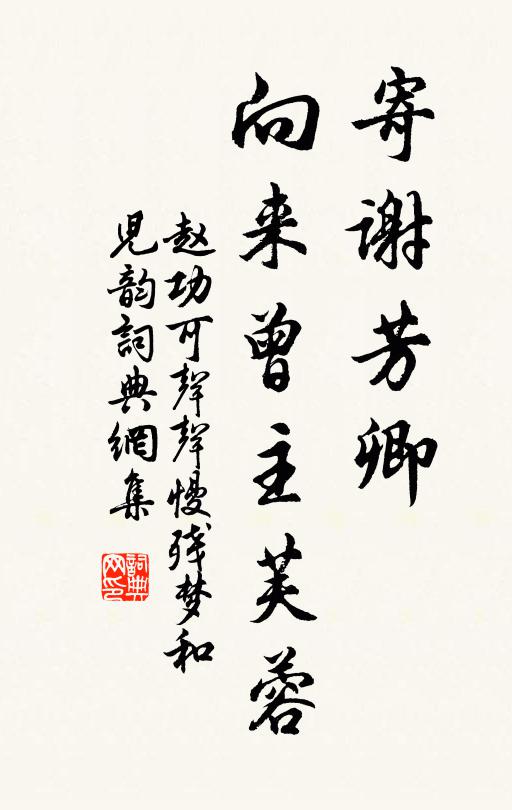 寄谢芳卿
向来曾主芙蓉
赵功可聲聲慢残梦和
児韵詞典網集
詞典网印